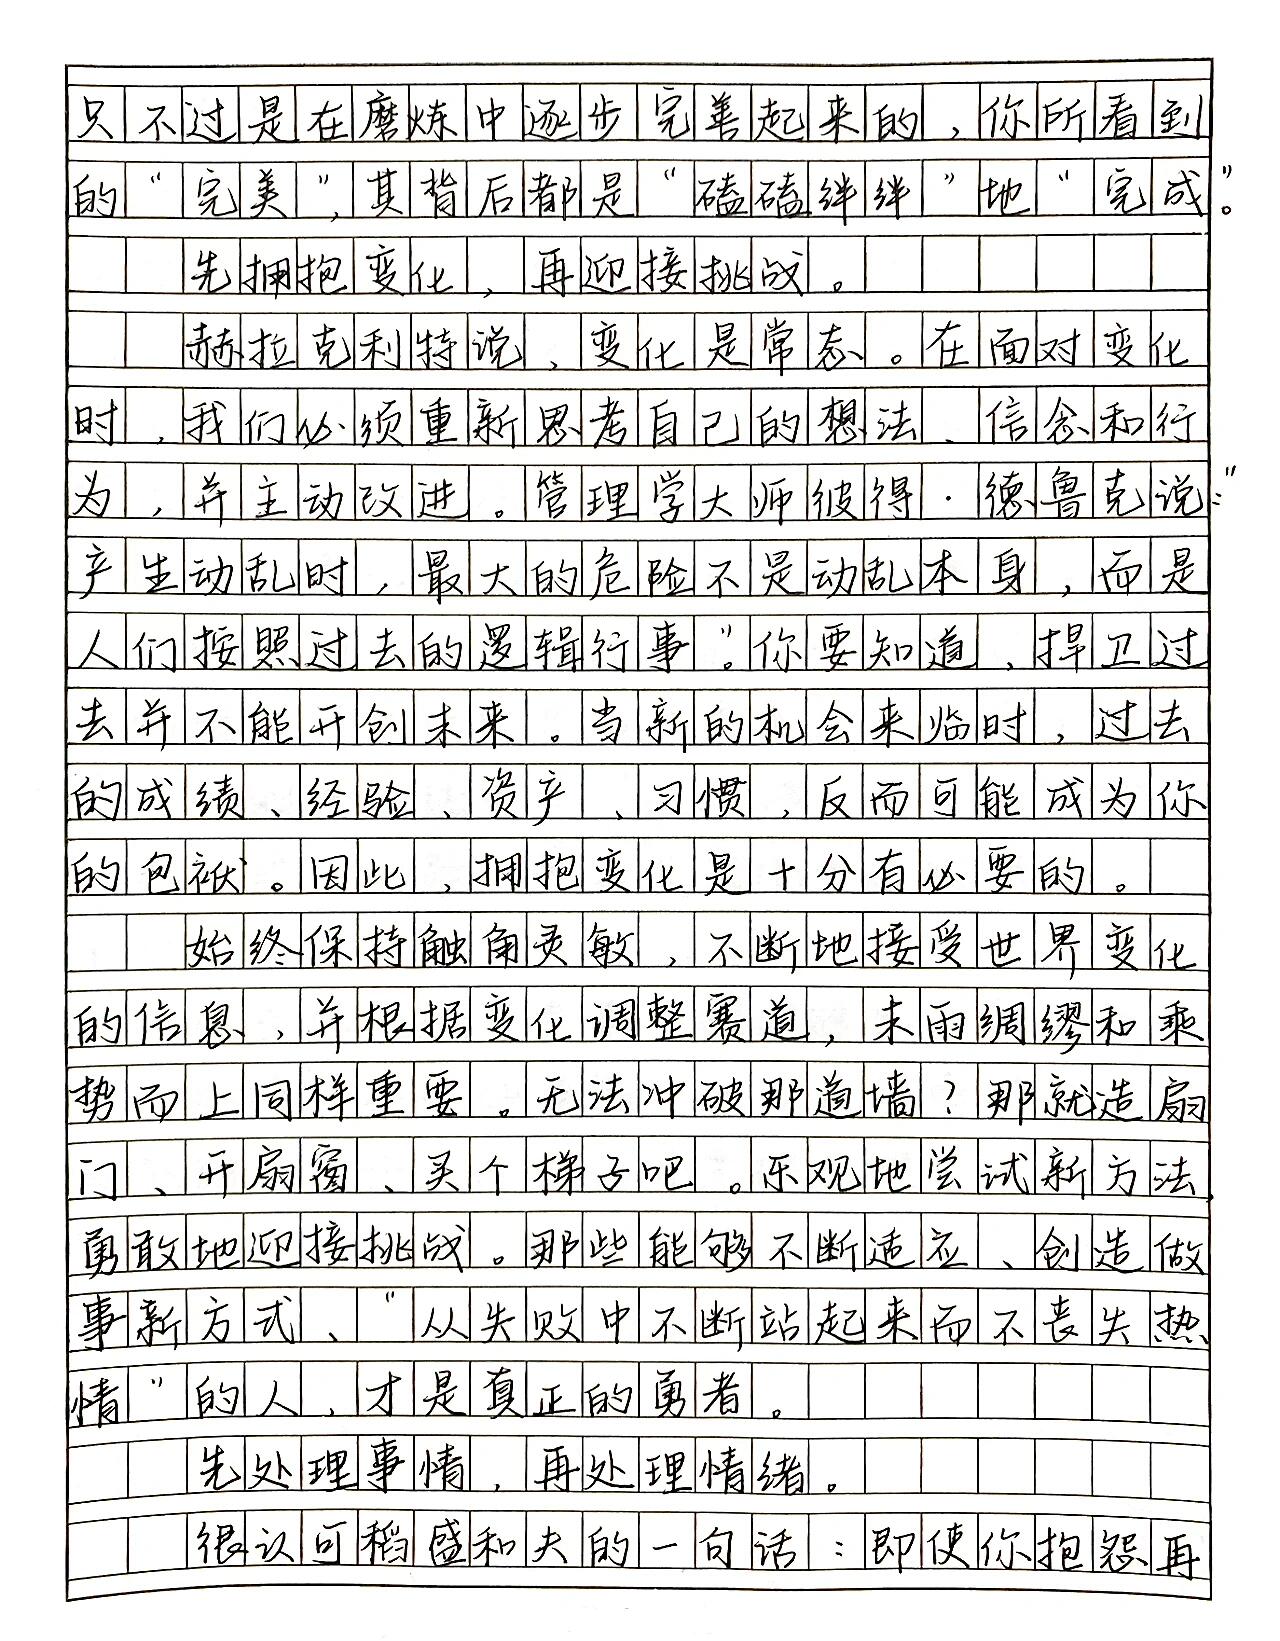 只不过是在磨炼中逐步完善起来的，你所看到
的“完美”，其背后都是“磕磕绊绊”地“完成”。
先拥抱变化，再迎接挑战。
赫拉克利特说，变化是常态。在面对变化
时，我们必须重新思考自己的想法、信念和行
为，并主动改进。管理学大师彼得·德鲁克说：“
产生动乱时，最大的危险不是动乱本身，而是
人们按照过去的逻辑行事”。你要知道，捍卫过
去并不能开创未来。当新的机会来临时，过去
的成绩、经验、资产、习惯，反而可能成为你
的包袱。因此，拥抱变化是十分有必要的。
始终保持触角灵敏，不断地接受世界变化
的信息，并根据变化调整赛道，未雨绸缪和乘
势而上同样重要。无法冲破那道墙？那就造扇
门、开扇窗、买个梯子吧。乐观地尝试新方法，
勇敢地迎接挑战。那些能够不断适应、创造做
事新方式、“从失败中不断站起来而不丧失热
情”的人，才是真正的勇者。
先处理事情，再处理情绪。
很认可稻盛和夫的一句话：即使你抱怨再